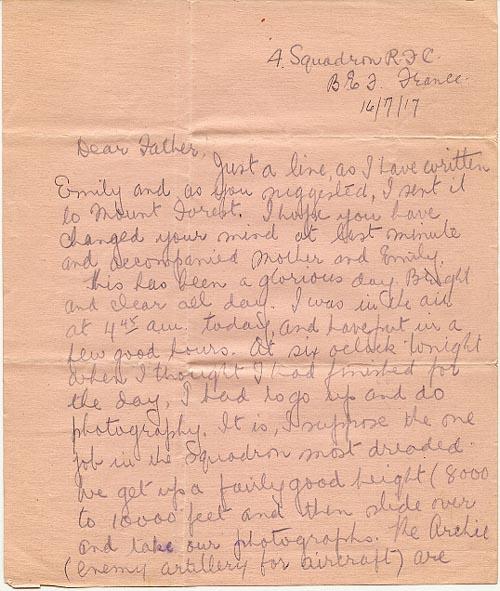 4. Squadron R.F.C.
B.E.F. France.
16/7/17
Dear Father,
Just a line, as I have written
Emily and as you suggested, I sent it
to Mount Forest. I hope you have
changed your mind at last minute
and accompanied Mother and Emily.
This has been a glorious day. Bright
and clear all day. I was in the air
at 4 45 a.m. today, and have put in a
few good hours. At six oclock tonight
when I thought I had finished for
the day, I had to go up and do
photography. It is, I suppose the one
job in the Squadron most dreaded.
We get up a fairly good height (8000
to 10000 feet and then slide over
and take our photographs. The Archie
(enemy artillery for aircraft) are